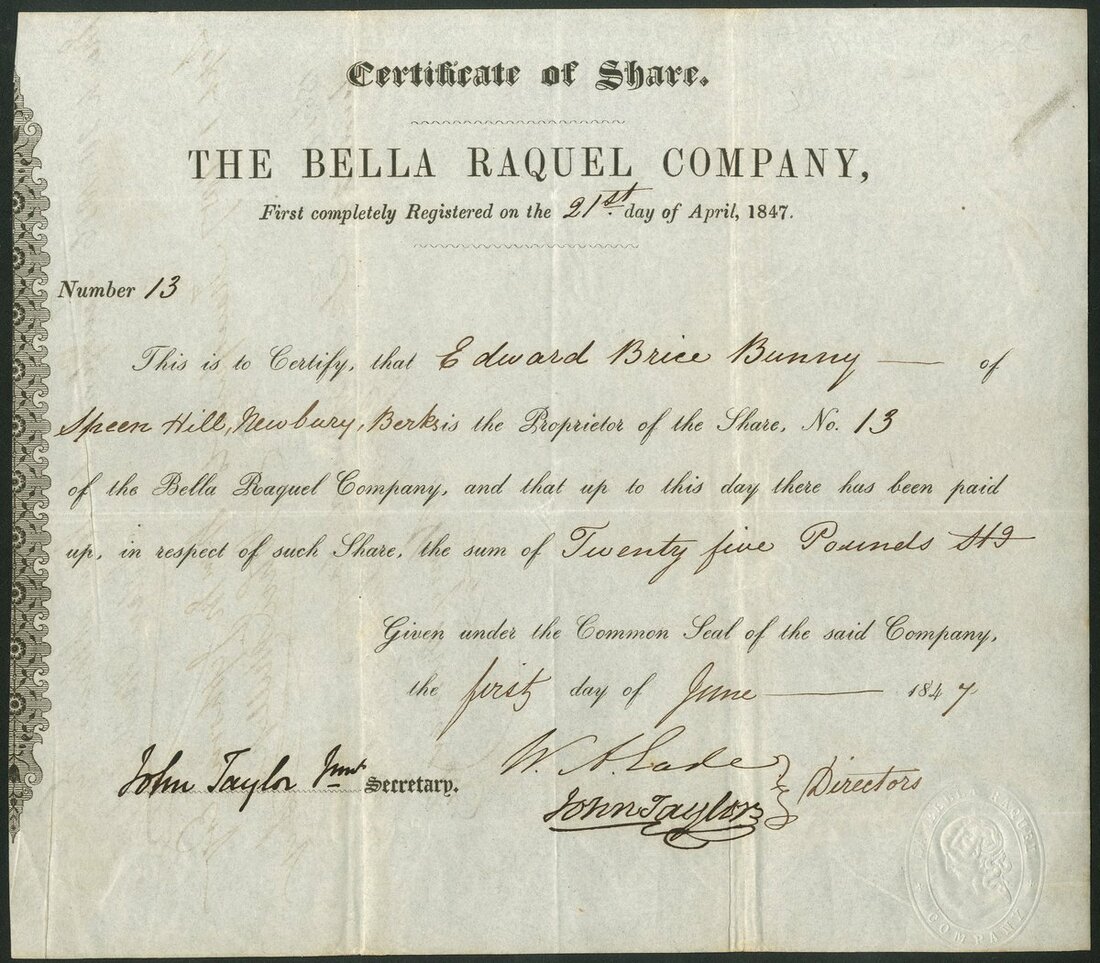 Certificate of Share.
THE BELLA RAQUEL COMPANY,
First completely Registered on the 21st. day of April, 1847.
Number 13
This is to Certify, that Edward Brice Bunny — of
Speen Hill, Newbury, Berks is the Proprietor of the Share, No. 13
of the Bella Raquel Company, and that up to this day there has been paid
up, in respect of such Share, the sum of Twenty five Pounds Stg
Given under the Common Seal of the said Company,
the first day of June — 1847
W. A.
John Taylor Junr Secretary.
John Taylor
Directors
BELLA RAQUEL
COMPANY